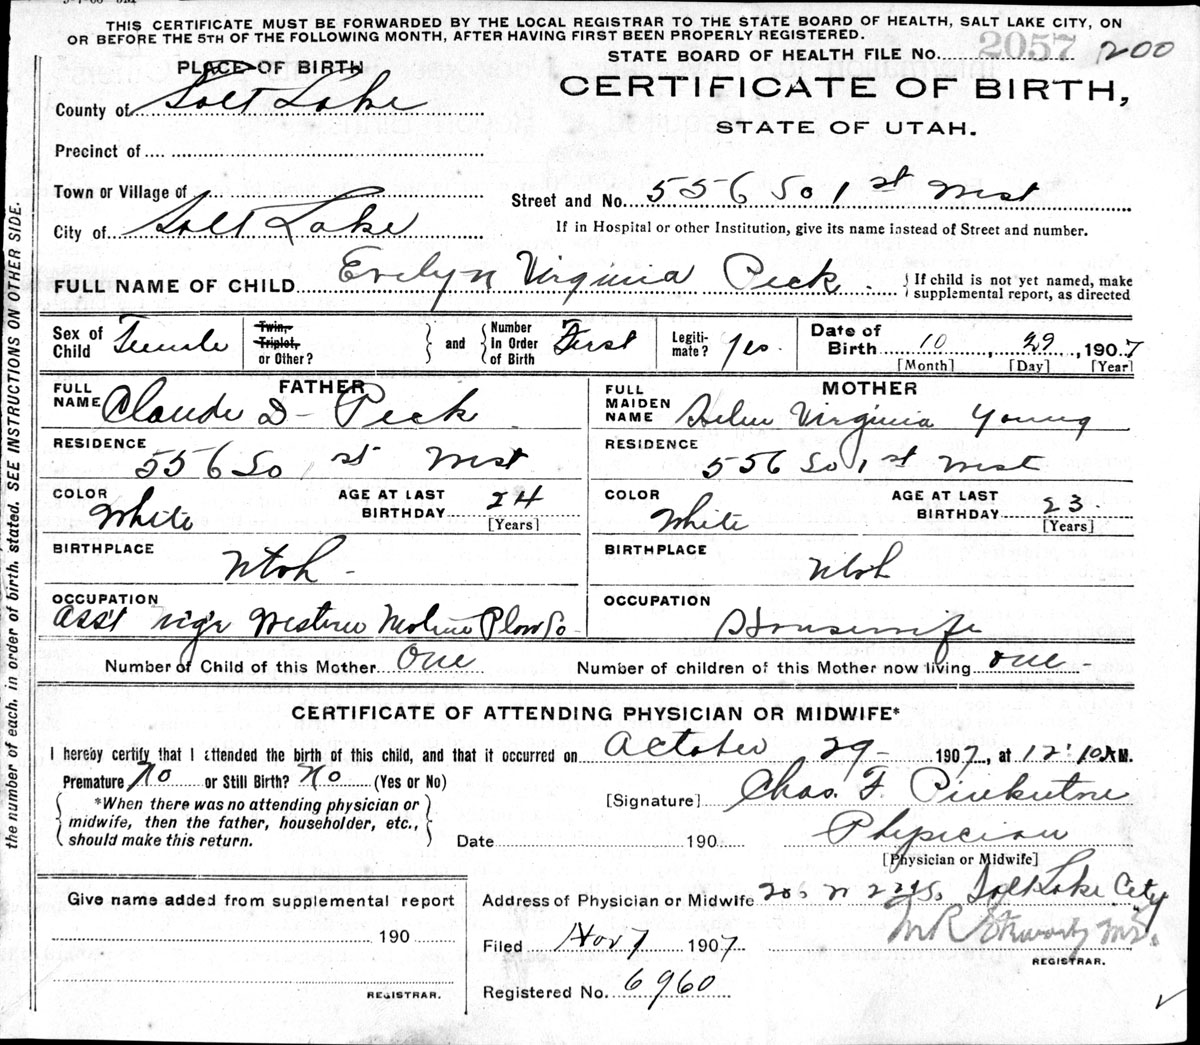 THIS CERTIFICATE MUST BE FORWARDED BY THE LOCAL REGISTRAR TO THE STATE BOARD OF HEALTH, SALT LAKE CITY, ON
OR BEFORE THE 5TH OF THE FOLLOWING MONTH, AFTER HAVING FIRST BEEN PROPERLY REGISTERED.
STATE BOARD OF HEALTH FILE No. 2057 200
PLACE OF BIRTH
CERTIFICATE OF BIRTH,
County of Salt Lake
STATE OF UTAH.
Precinct of
Town or Village of
Street and No. 556 So 1st West
City of Salt Lake
If in Hospital or other Institution, give its name instead of Street and number.
FULL NAME OF CHILD Evelyn Virginia Peck. { If child is not yet named, make
supplemental report, as directed
Sex of Child Female Twin, Triplet, or Other? } and { Number In Order of Birth First Legiti- mate? Yes. Date of Birth 10, 29, 1907
[Month] [Day] [Year]
FATHER
FULL NAME Claude D- Peck
MOTHER
FULL MAIDEN NAME Helen Virginia Young
RESIDENCE 556 So 1st West
RESIDENCE 556 So 1st West
COLOR White AGE AT LAST BIRTHDAY 24 [Years]
COLOR White AGE AT LAST BIRTHDAY 23. [Years]
BIRTHPLACE Utah -
BIRTHPLACE Utah
OCCUPATION Ass't Mg'r Western Moline Plow Co
OCCUPATION Housewife
Number of Child of this Mother One Number of children of this Mother now living one -
CERTIFICATE OF ATTENDING PHYSICIAN OR MIDWIFE*
I hereby certify that I attended the birth of this child, and that it occurred on October 29- 1907, at 12:10 A M.
Premature? No or Still Birth? No (Yes or No)
[Signature] Chas. F.
*When there was no attending physician or
midwife, then the father, householder, etc.,
should make this return.
Date 190 Physician
[Physician or Midwife]
Give name added from supplemental report
190
REGISTRAR.
Address of Physician or Midwife Salt Lake City
Filed Nov 7 1907
REGISTRAR.
Registered No. 6960
the number of each, in order of birth, stated. SEE INSTRUCTIONS ON OTHER SIDE.